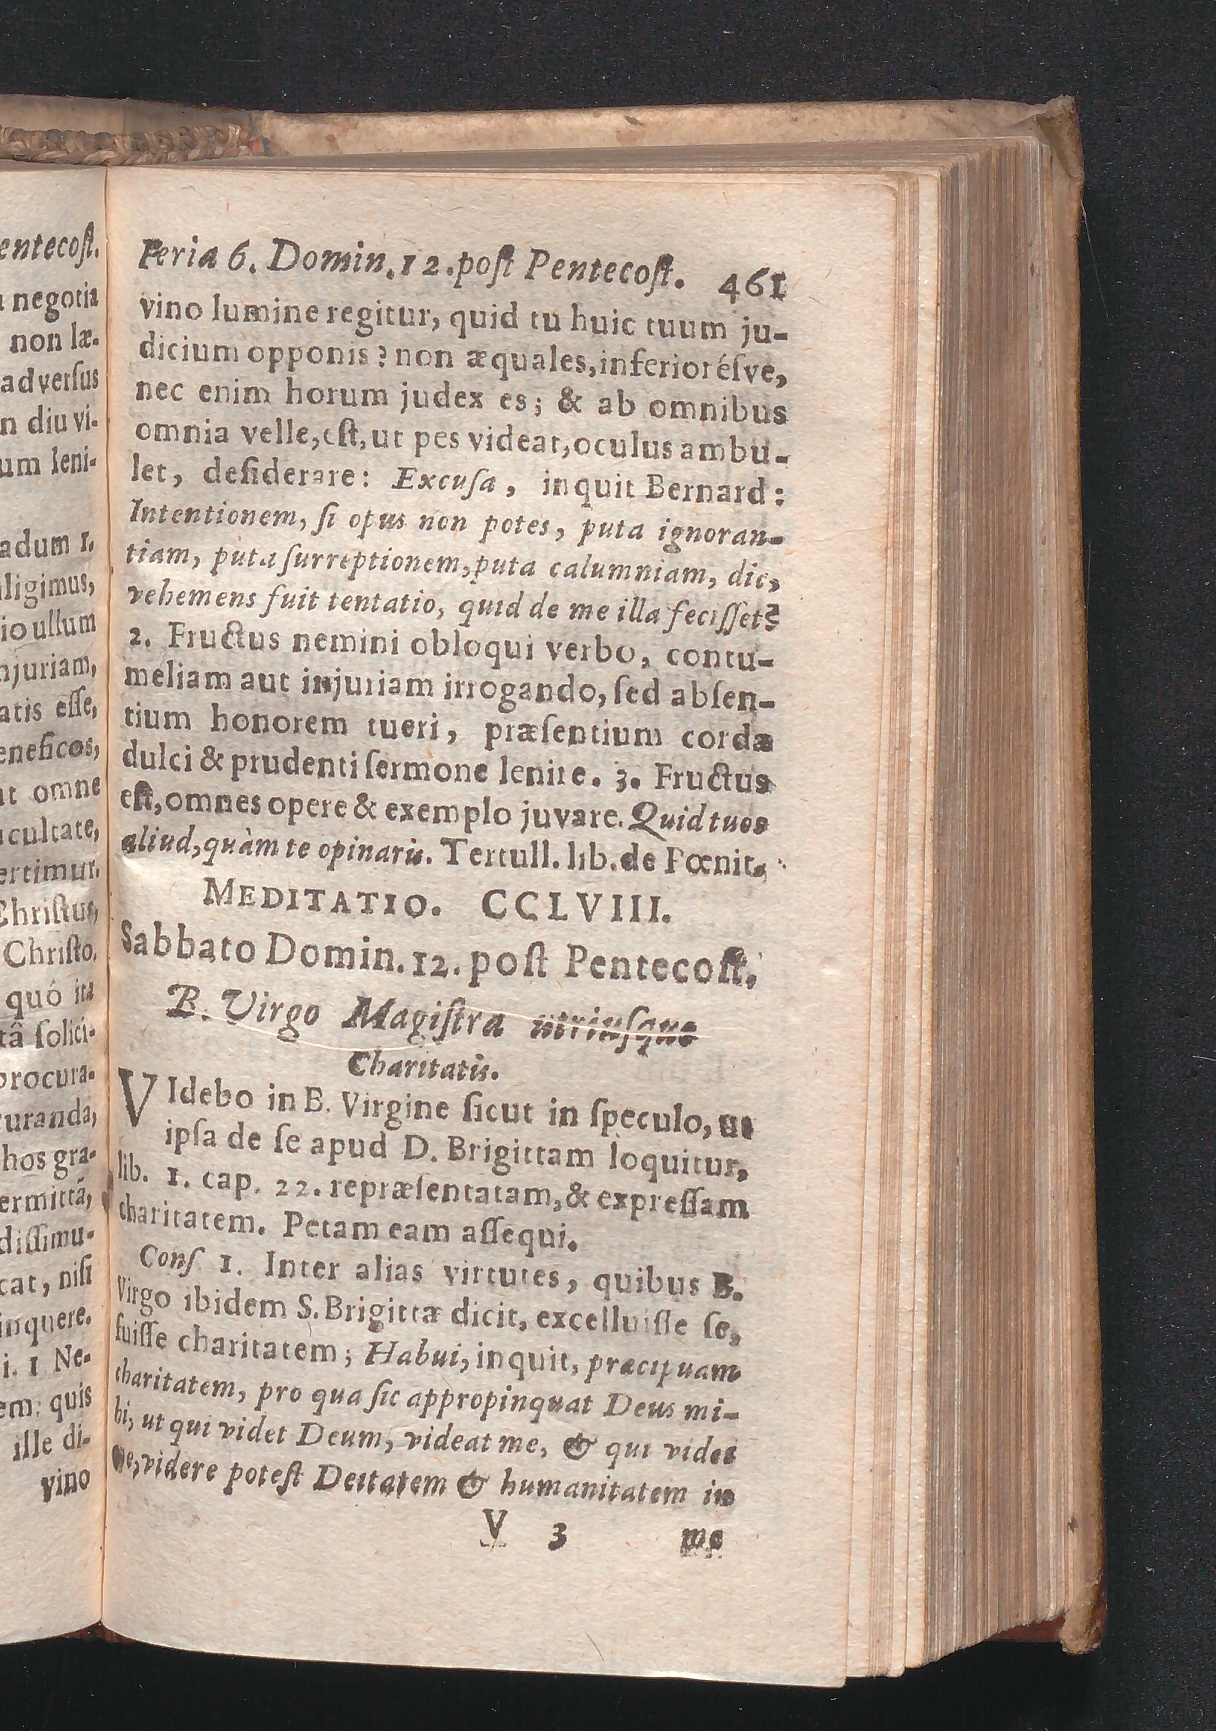 entecoſt.
negotia
non læ-
adverſus
n diu vi-
um leni-
adum 1.
ligimus,
io ullum
njuriam,
atis eſſe,
eneficos,
ut omne
cultate,
ertimur.
Chriſtus,
Chriſto.
quô ita
tâ ſolici-
procura-
uranda,
hos gra-
ermittā,
diſſimu-
cat, niſi
inquere.
i. 1 Ne-
em: quis
ille di-
vino
Feria 6. Domin. 12. poſt Pentecoſt. 461
vino lumine regitur, quid tu huic tuum ju-
dicium opponis? non æquales, inferioréſve,
nec enim horum judex es; & ab omnibus
omnia velle, eſt, ut pes videat, oculus ambu-
let, deſiderare: Excuſa, inquit Bernard:
Intentionem, ſi opus non potes, puta ignoran-
tiam, puta ſurreptionem, puta calumniam, dic,
vehemens fuit tentatio, quid de me illa feciſſet?
2. Fructus nemini obloqui verbo, contu-
meliam aut injuriam irrogando, ſed abſen-
tium honorem tueri, præſentium corda
dulci & prudenti ſermone lenire. 3. Fructus
eſt, omnes opere & exemplo juvare. Quid tuos
aliud, quàm te opinaris. Tertull. lib. de Pœnit.
MEDITATIO. CCLVIII.
Sabbato Domin. 12. poſt Pentecoſt.
B. Virgo Magiſtra utriuſque
Charitatis.
VIdebo in B. Virgine ſicut in ſpeculo, ut
ipſa de ſe apud D. Brigittam loquitur,
lib. 1. cap. 22. repræſentatam, & expreſſam
charitatem. Petam eam aſſequi.
Conſ 1. Inter alias virtutes, quibus B.
Virgo ibidem S. Brigittæ dicit, excelluiſſe ſe,
fuiſſe charitatem; Habui, inquit, præcipuam
charitatem, pro qua ſic appropinquat Deus mi-
hi, ut qui videt Deum, videat me, & qui videt
me, videre poteſt Deitatem & humanitatem in
V 3 me